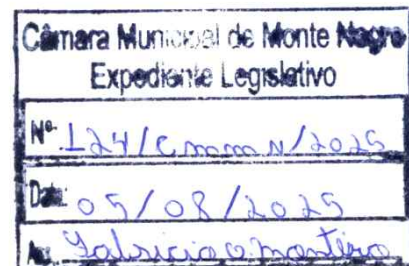 Câmara Municipal de Monte Negro
Expediente Legislativo
Nº 124/CMMN/2025
Data: 05/08/2025
Fabricio O. Monteiro